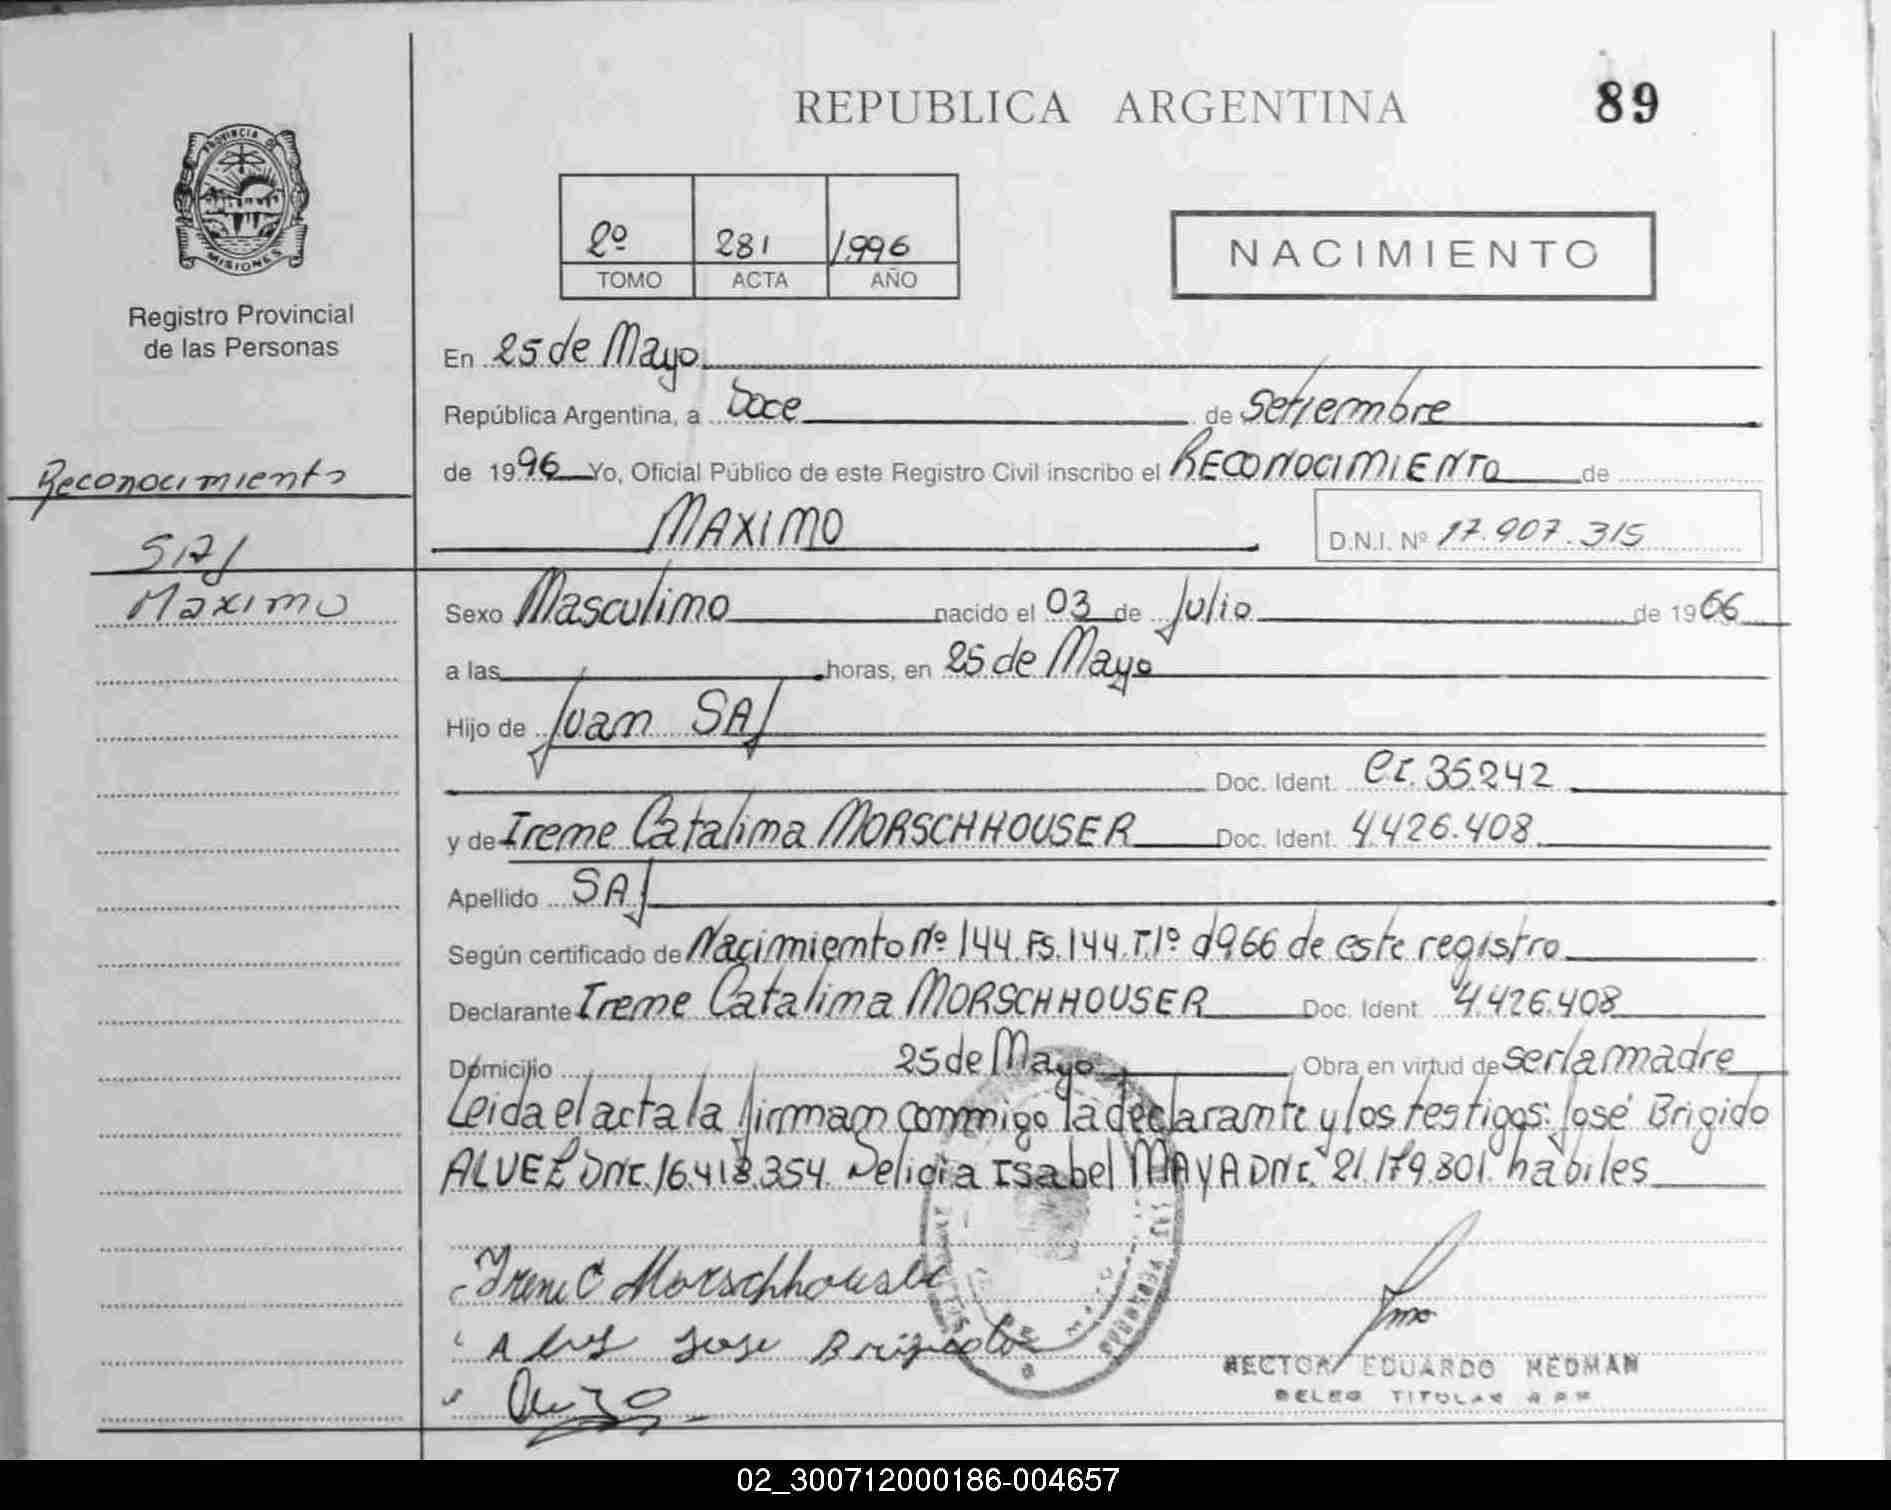 REPUBLICA ARGENTINA
89
PROVINCIA DE
MISIONES
Registro Provincial
de las Personas
2º 281 1.996
TOMO ACTA AÑO
NACIMIENTO
En 25 de Mayo
República Argentina, a Doce de Setiembre
de 1996 Yo, Oficial Público de este Registro Civil inscribo el RECONOCIMIENTO de
Reconocimiento
MAXIMO
D.N.I. Nº 17.907.315
SAJ
Maximo
Sexo Masculino nacido el 03 de Julio de 1966
a las horas, en 25 de Mayo
Hijo de Juan SAJ
Doc. Ident. C.I. 35.242
y de Irene Catalina MORSCHHOUSER Doc. Ident. 4.426.408
Apellido SAJ
Según certificado de Nacimiento Nº 144. Fs. 144. T.1º d 966 de este registro
Declarante Irene Catalina MORSCHHOUSER Doc. Ident 4.426.408
Domicilio 25 de Mayo Obra en virtud de ser la madre
Leida el acta la firman conmigo la declarante y los testigos: José Brigido
ALVEZ DNI. 16.418.354. Delicia Isabel MAYA DNI. 21.179.801. habiles
Irene C Morschhouser
Jose Brigido
HECTOR EDUARDO HEDMAN
DELEG TITULAR
02_300712000186-004657